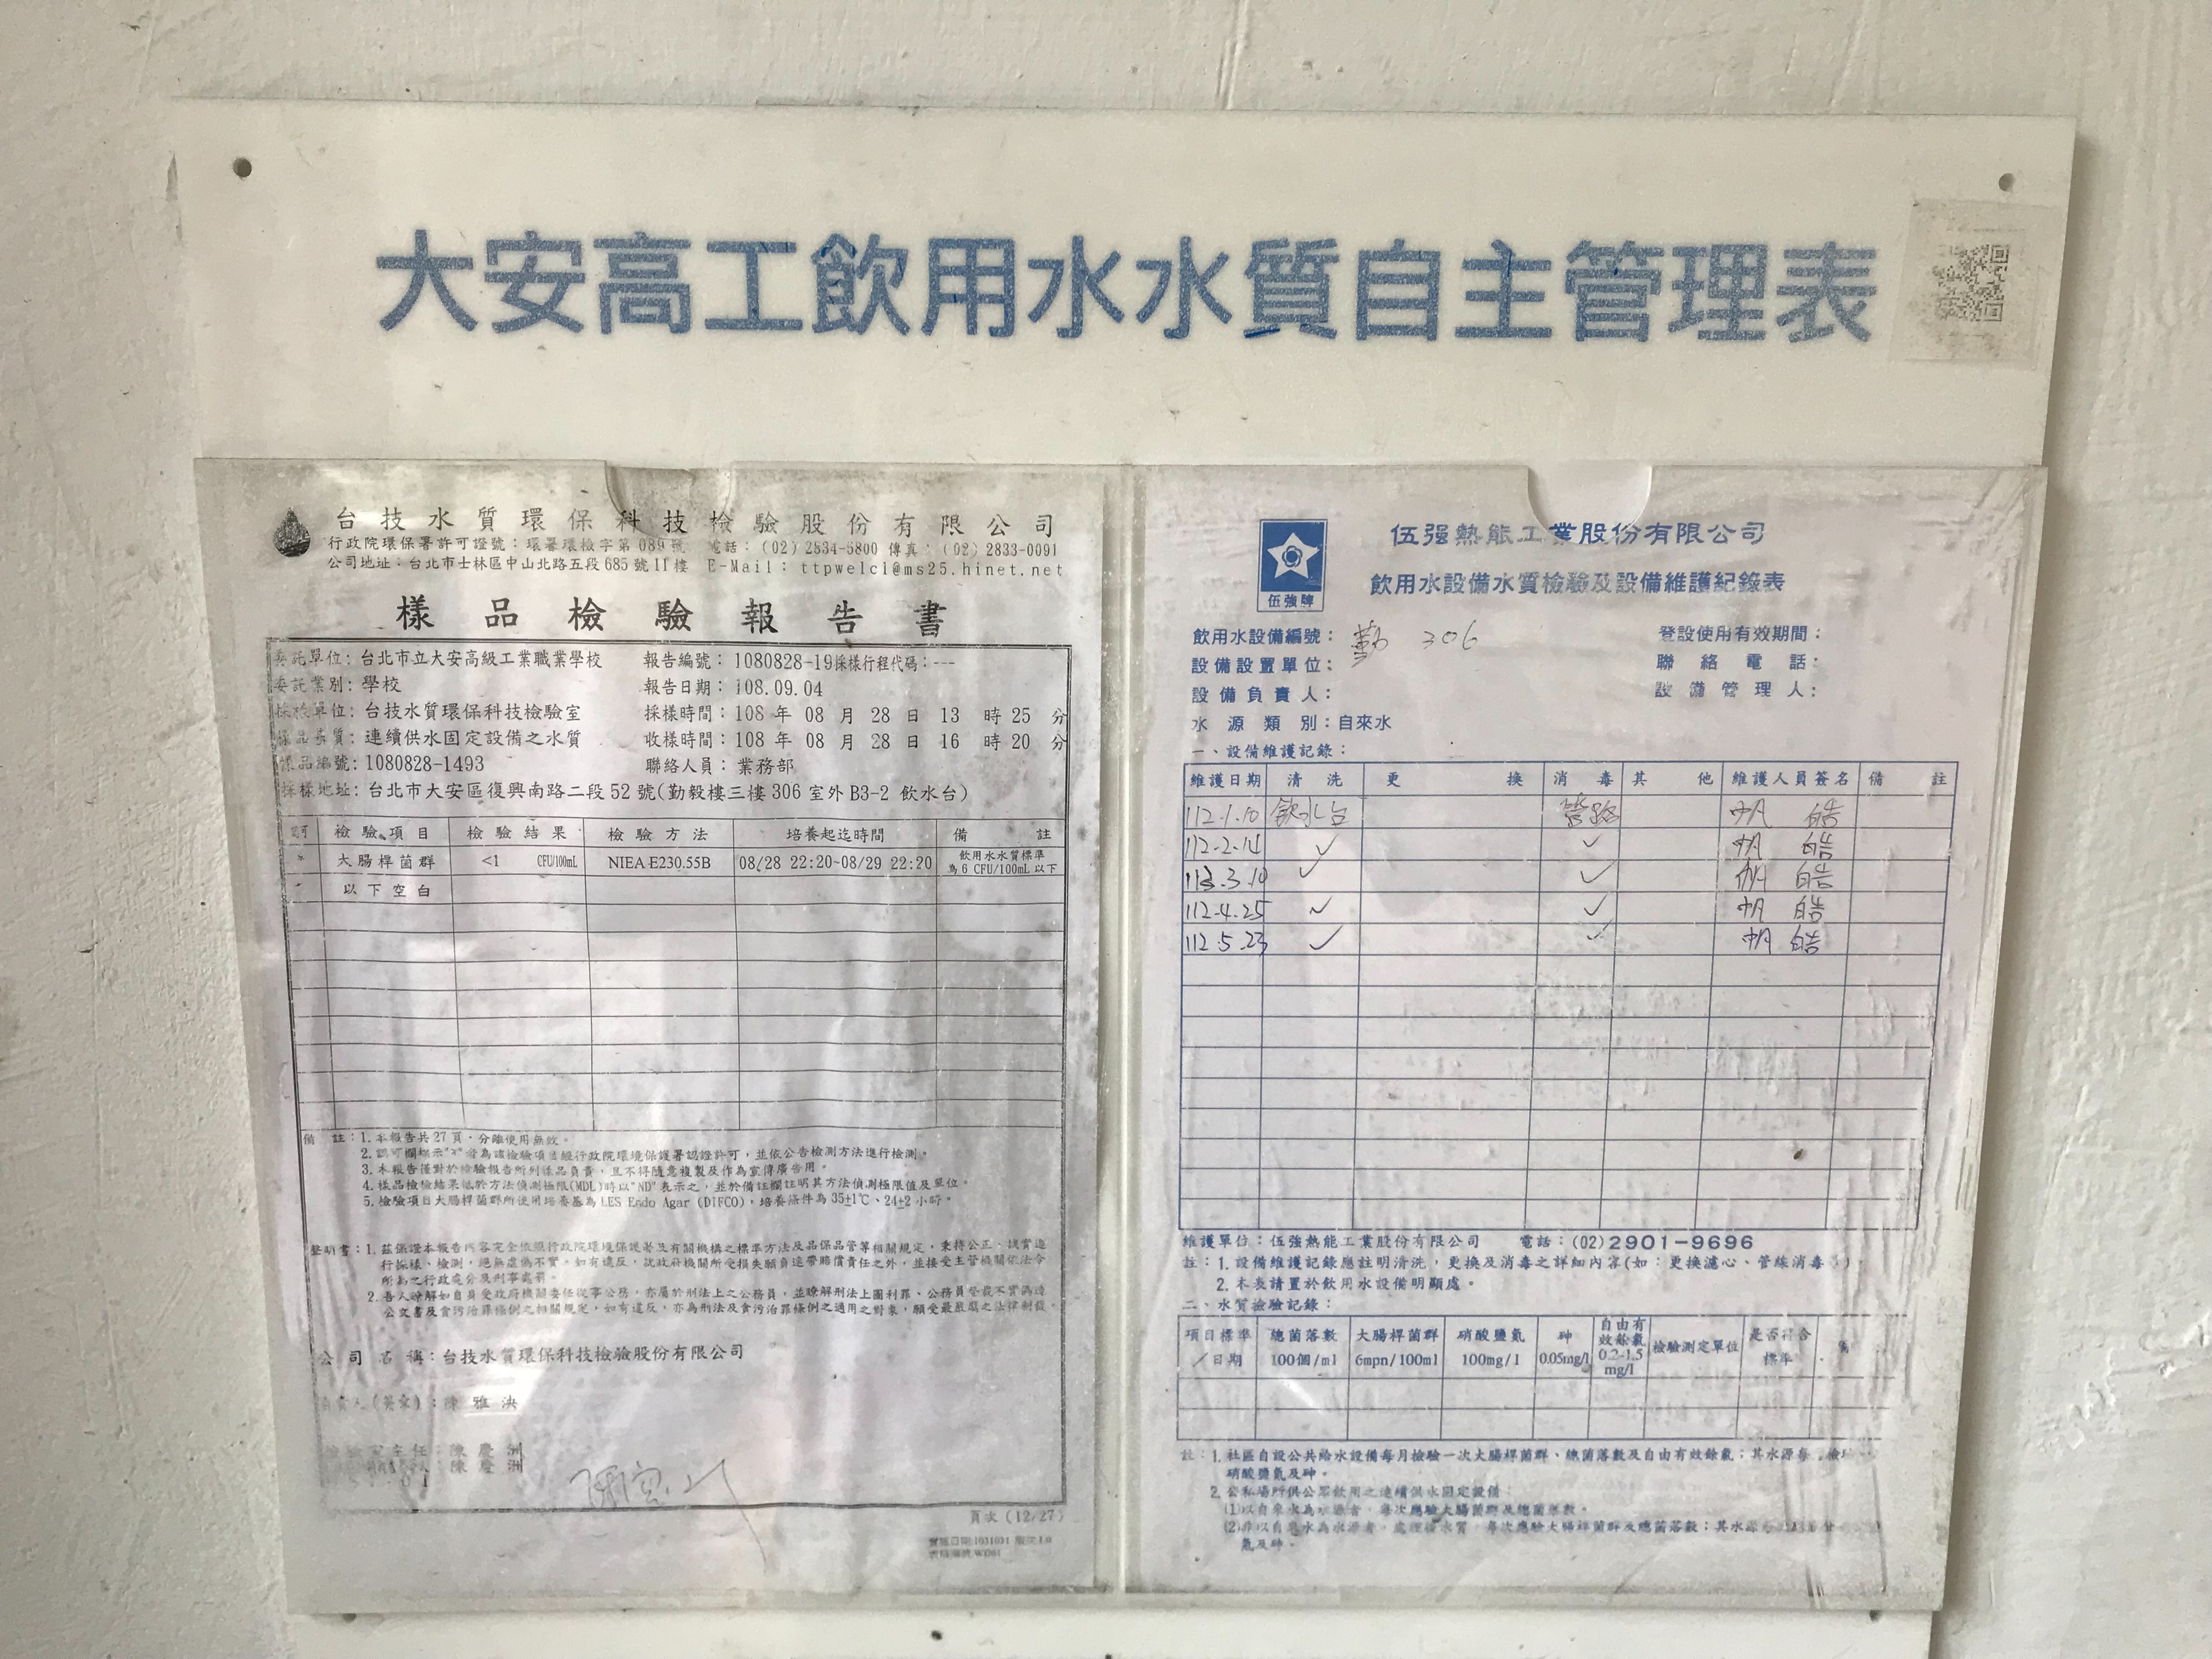 大安高工飲用水水質自主管理表
台技水質環保科技檢驗股份有限公司
行政院環保署許可證號：環署環檢字第089號 電話：(02)2834-5800 傳真：(02)2833-0091
公司地址：台北市士林區中山北路五段685號11樓 E-Mail：ttpwelci@ms25.hinet.net
樣品檢驗報告書
委託單位：台北市立大安高級工業職業學校 報告編號：1080828-19採樣行程代碼：---
委託業別：學校 報告日期：108.09.04
採樣單位：台技水質環保科技檢驗室 採樣時間：108 年 08 月 28 日 13 時 25 分
樣品基質：連續供水固定設備之水質 收樣時間：108 年 08 月 28 日 16 時 20 分
樣品編號：1080828-1493 聯絡人員：業務部
採樣地址：台北市大安區復興南路二段52號(勤毅樓三樓306室外B3-2 飲水台)
認可 檢驗項目 檢驗結果 檢驗方法 培養起迄時間 備註
* 大腸桿菌群 <1 CFU/100mL NIEA E230.55B 08/28 22:20~08/29 22:20 飲用水水質標準
為6 CFU/100mL以下
以下空白
備註：1.本報告共27頁，分離使用無效。
2.認可欄標示"*"者為該檢驗項目經行政院環境保護署認證許可，並依公告檢測方法進行檢測。
3.本報告僅對於檢驗報告所列樣品負責，且不得隨意複製及作為宣傳廣告用。
4.樣品檢驗結果低於方法偵測極限(MDL)時以"ND"表示之，並於備註欄註明其方法偵測極限值及單位。
5.檢驗項目大腸桿菌群所使用培養基為LES Endo Agar (DIFCO)，培養條件為35±1℃、24±2小時。
聲明書：1.茲保證本報告內容完全依照行政院環境保護署及有關機構之標準方法及品保品管等相關規定，秉持公正、誠實進
行採樣、檢測，絕無虛偽不實，如有違反，就政府機關所受損失願負連帶賠償責任之外，並接受主管機關依法令
所為之行政處分及刑事處罰。
2.吾人瞭解如自身受政府機關委任從事公務，亦屬於刑法上之公務員，並瞭解刑法上圖利罪、公務員登載不實偽造
公文書及貪污治罪條例之相關規定，如有違反，亦為刑法及貪污治罪條例之適用之對象，願受最嚴厲之法律制裁。
公司名稱：台技水質環保科技檢驗股份有限公司
負責人(簽章)：陳雅泱
檢驗室主任：陳慶洲
陳慶洲
頁次(12/27)
伍強牌
伍強熱能工業股份有限公司
飲用水設備水質檢驗及設備維護紀錄表
飲用水設備編號：勤 306 登設使用有效期間：
設備設置單位： 聯絡電話：
設備負責人： 設備管理人：
水源類別：自來水
一、設備維護記錄：
維護日期 清洗 更換 消毒 其他 維護人員簽名 備註
112.1.10 飲水台 管路 帆皓
112.2.14 ✓ ✓ 帆皓
112.3.10 ✓ ✓ 帆皓
112.4.25 ✓ ✓ 帆皓
112.5.23 ✓ ✓ 帆皓
維護單位：伍強熱能工業股份有限公司 電話：(02)2901-9696
註：1.設備維護記錄應註明清洗，更換及消毒之詳細內容(如：更換濾心、管線消毒
2.本表請置於飲用水設備明顯處。
二、水質檢驗記錄：
項目標準／日期 總菌落數 100個/ml 大腸桿菌群 6mpn/100ml 硝酸鹽氮 100mg/l 砷 0.05mg/l 自由有效餘氯 0.2-1.5 mg/l 檢驗測定單位 是否符合標準
註：1.社區自設公共給水設備每月檢驗一次大腸桿菌群、總菌落數及自由有效餘氯；其水源每
硝酸鹽氮及砷。
2.公私場所供公眾飲用之連續供水固定設備：
(1)以自來水為水源者，每次應驗大腸菌群及總菌落數。
(2)非以自來水為水源者，處理後水質，每次應驗大腸桿菌群及總菌落數；其水源
氮及砷。